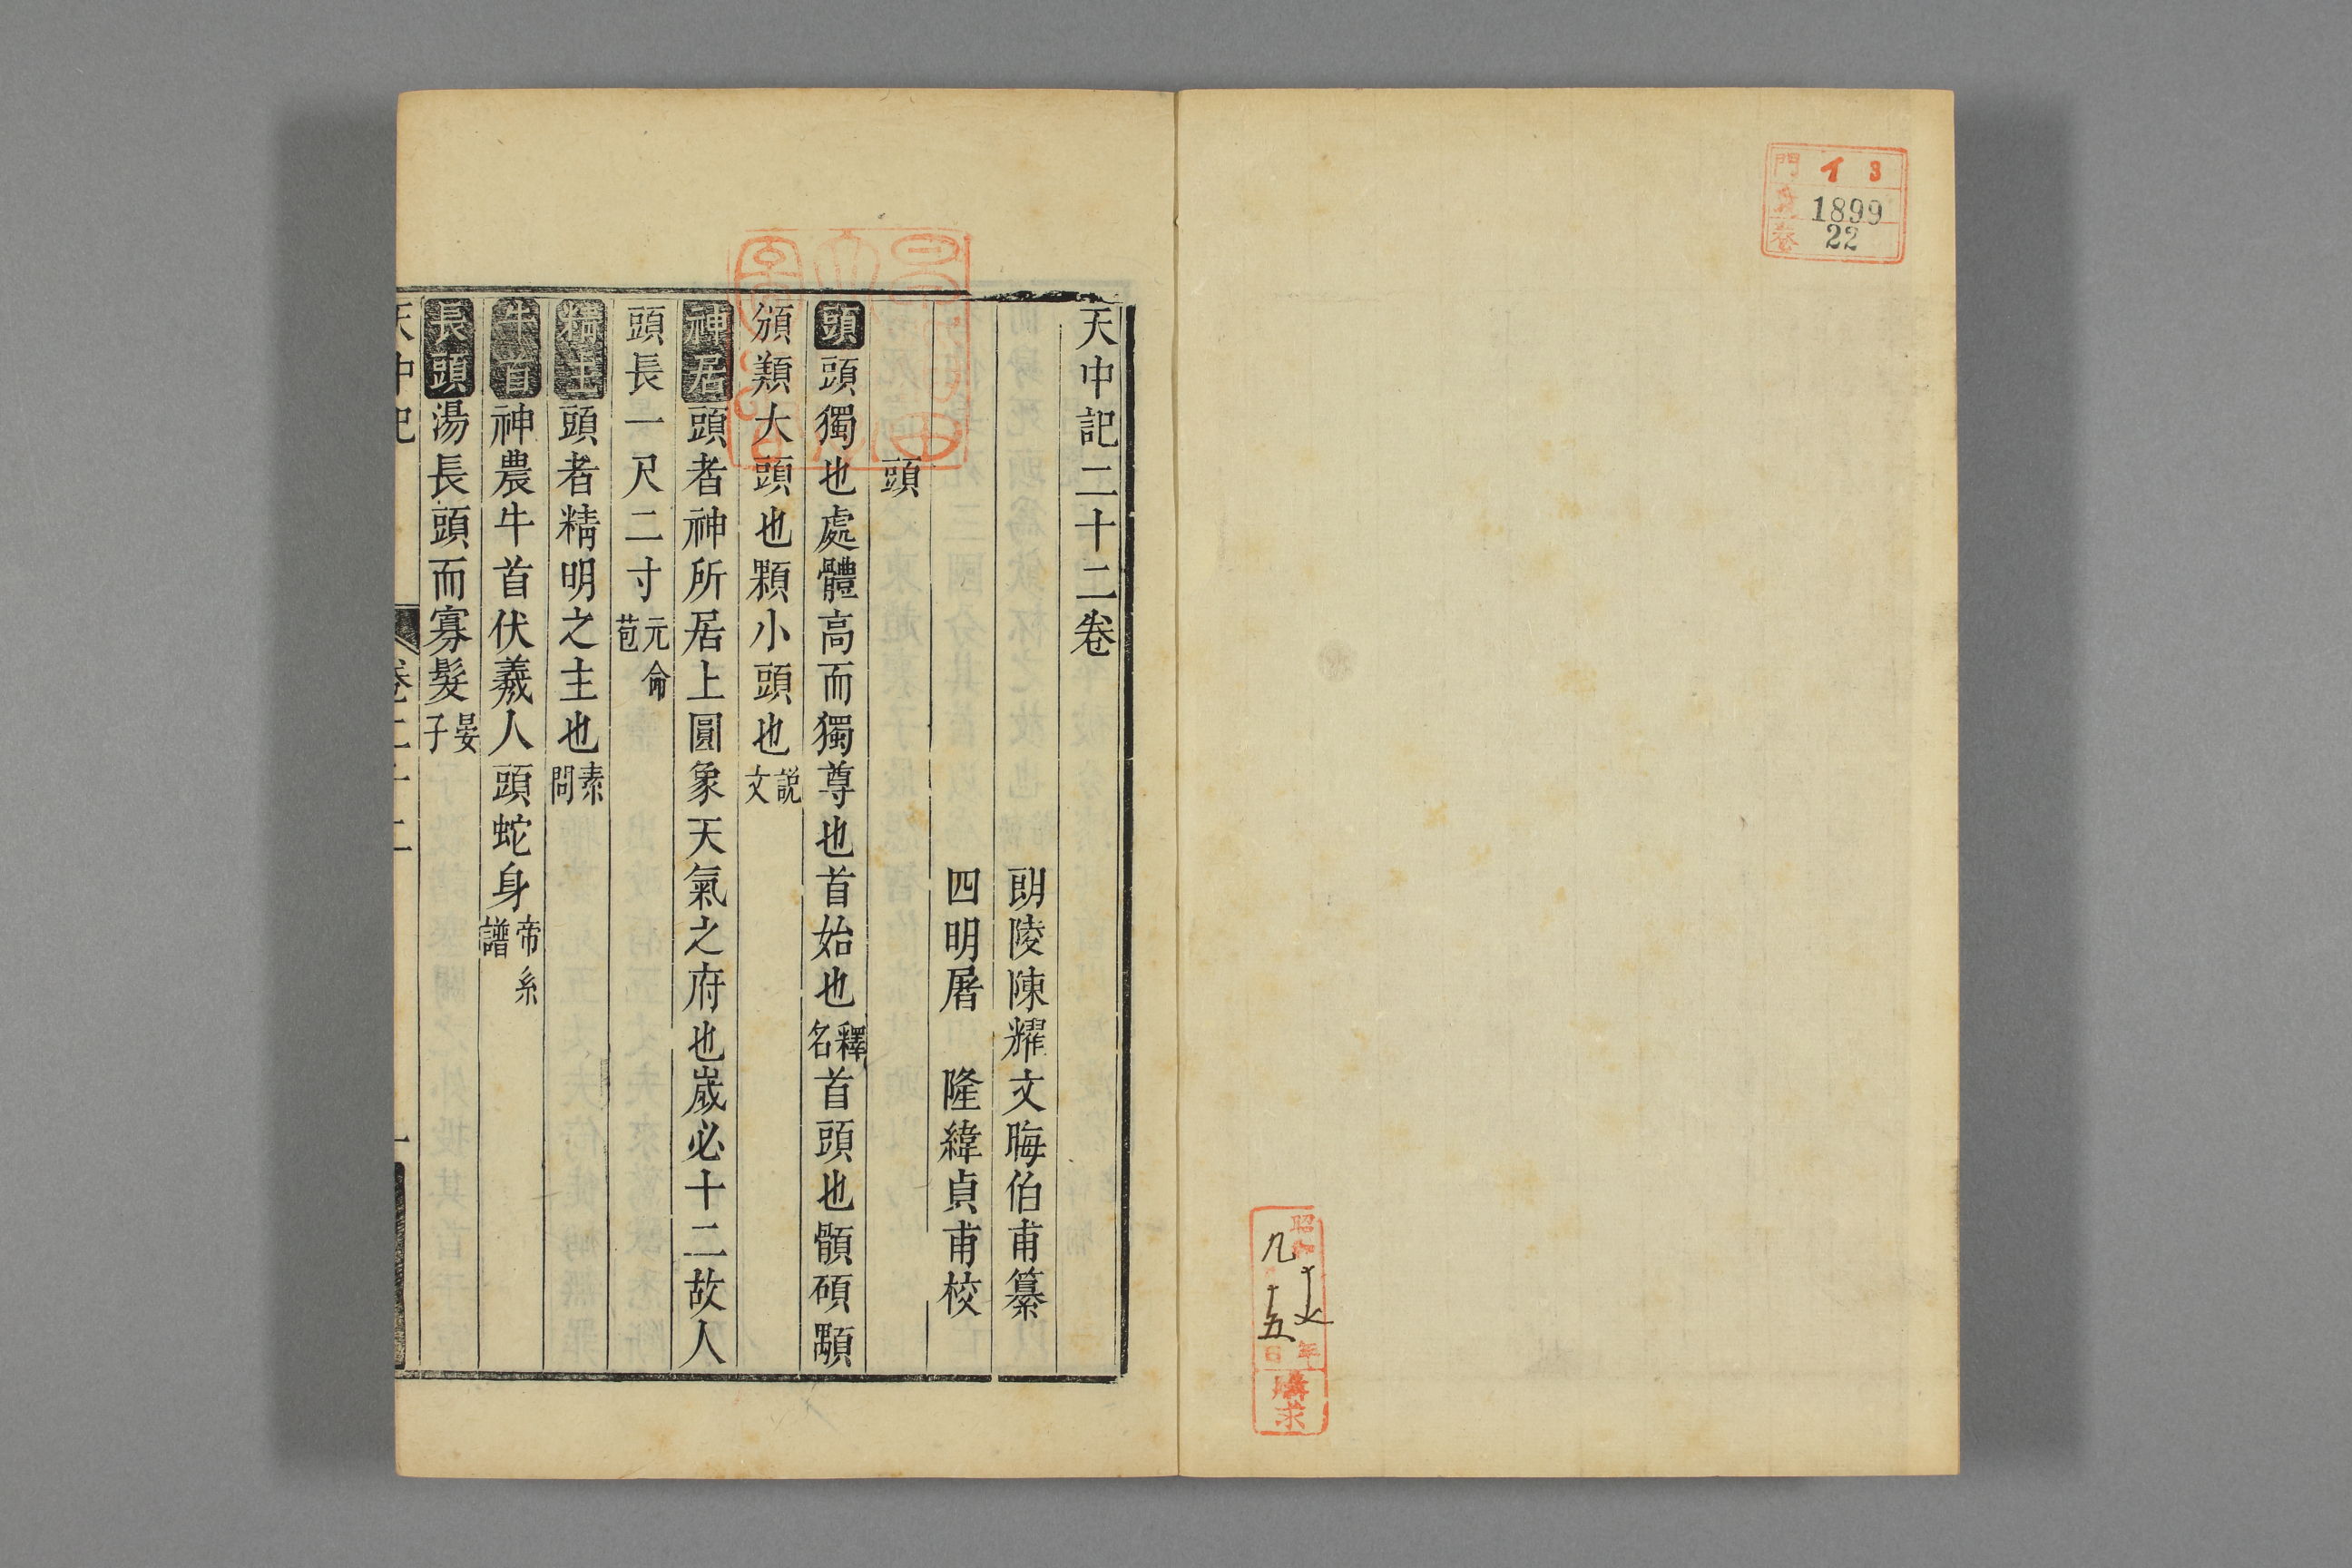 門 イ 3
1899
卷 22
昭和
九年
五日
購求
天中記二十二卷
朗陵陳耀文晦伯甫纂
四明屠 隆緯貞甫校
頭
頭頭獨也處體高而獨尊也首始也釋名首頭也顝碩顒
頒䫏大頭也顆小頭也説文
神居頭者神所居上圓象天氣之府也嵗必十二故人
頭長一尺二寸元命苞
精主頭者精明之主也素問
牛首神農牛首伏羲人頭蛇身帝系譜
長頭湯長頭而寡髮晏子
天中記 卷二十二 一